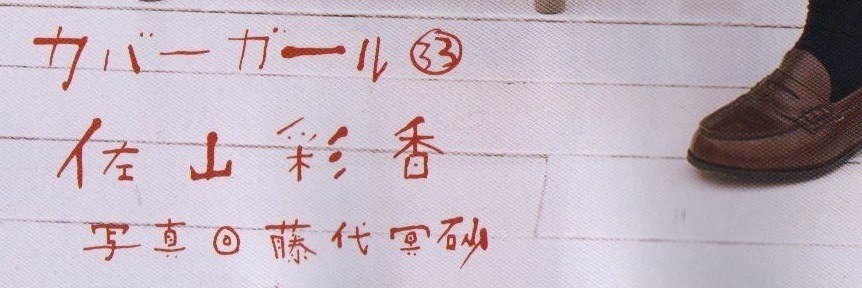 カバーガール㉝
佐山彩香
写真◎藤代冥砂